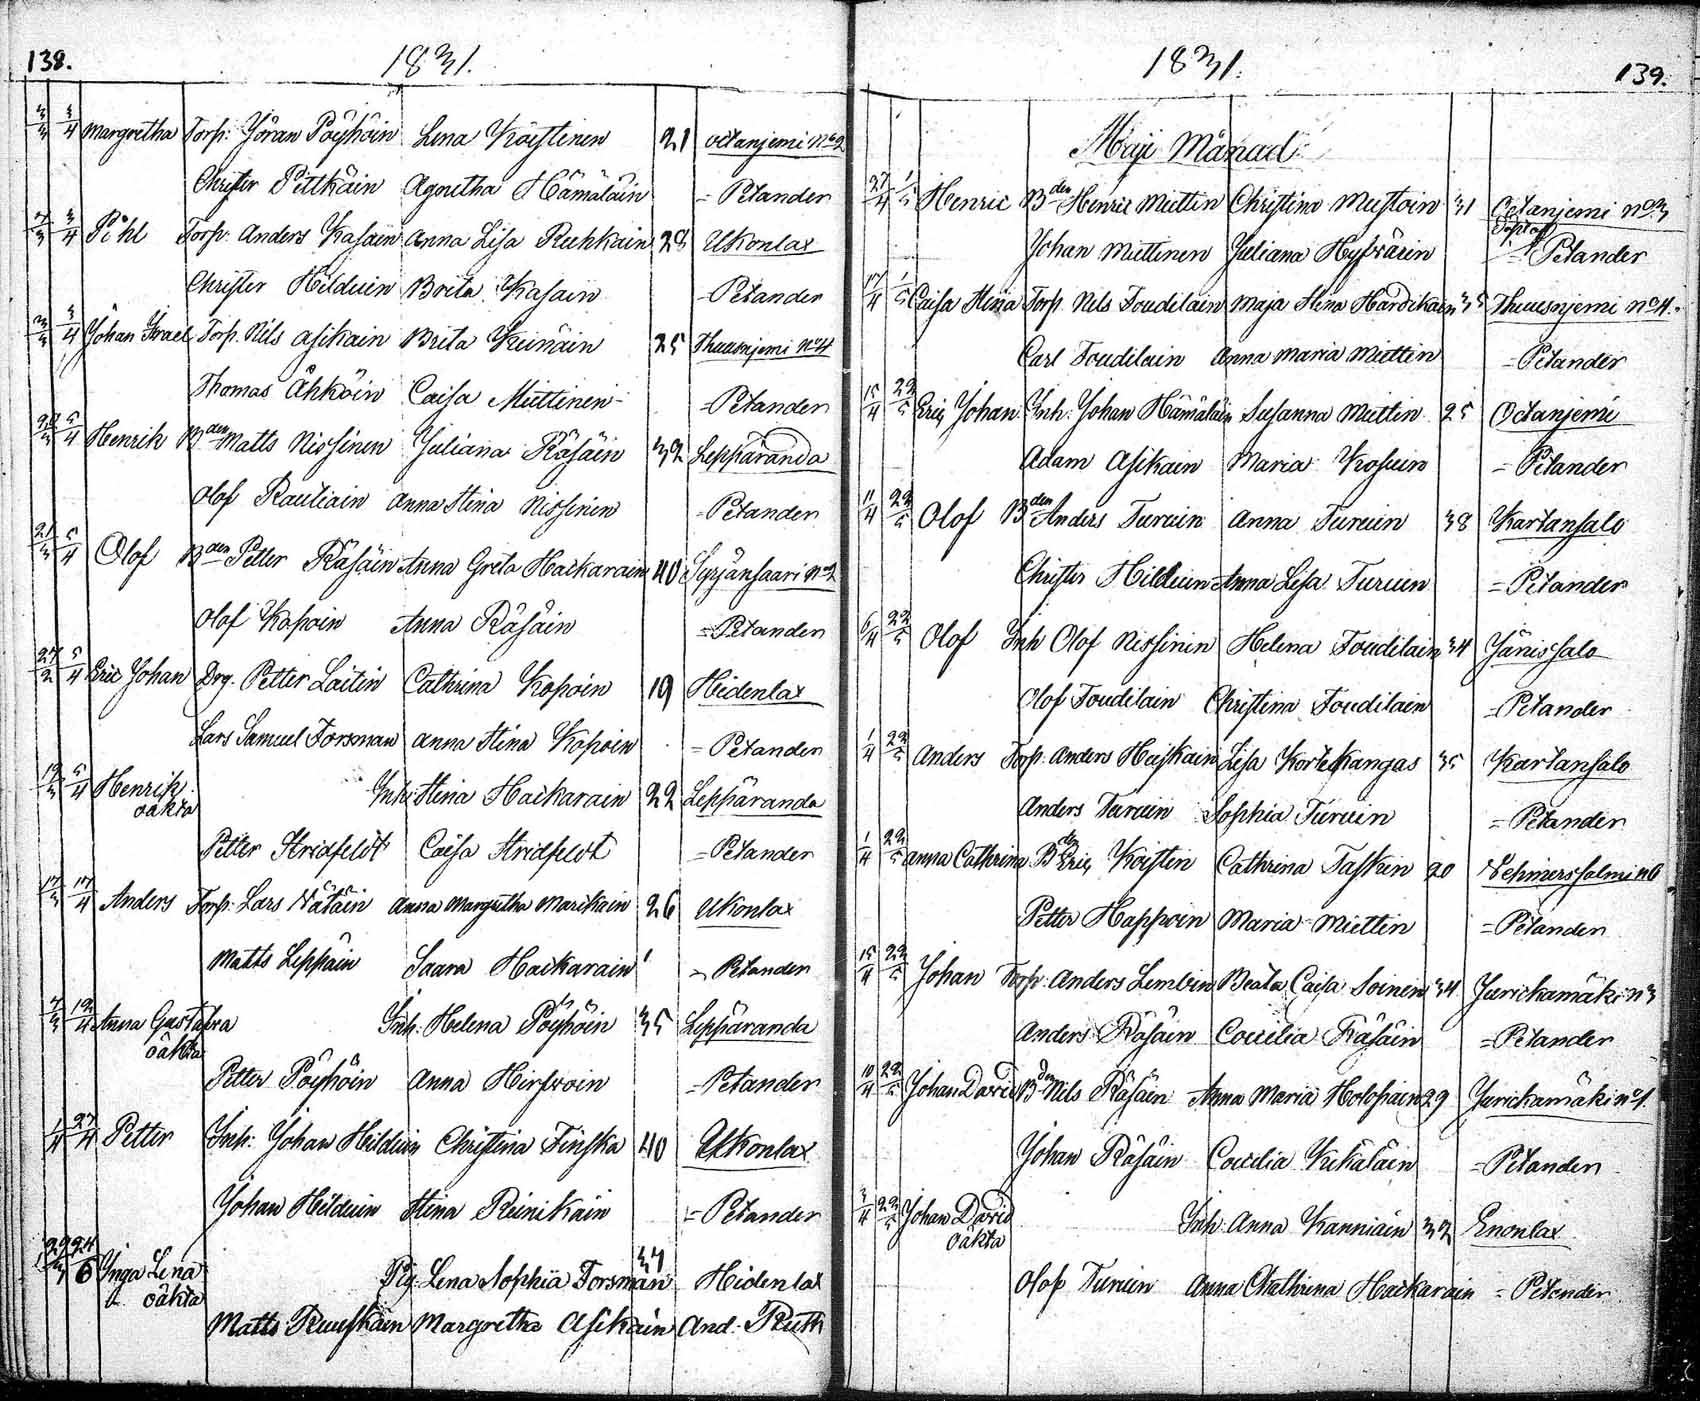 138.
1831.
3/3 3/4 Margretha Torp: Jöran Pöyhöin Lena Köistinen 21 Oetanjemi No 2
Christer Pitkäin Agnetha Hämäläin = Petander
7/3 3/4 Pihl Torp: Anders Kasain Anna Lisa Ruhkain 28 Ukonlax
Christer Hilduin Brita Kasain = Petander
3/4 Johan Israel Torp. Nils Asikain Brita Keinäin 25 Thuusnjemi No 4
Thomas Ähköin Caisa Miettinen = Petander
5/4 Henrik Bden Matts Nissinen Juliana Räsäin 32 Leppäranda
Olof Rautiain Anna Stina Nissinen = Petander
21/3 5/4 Olof Bden Petter Räsäin Anna Greta Hackarain 40 Syrjänsaari No 2
Olof Kopoin Anna Räsäin = Petander
5/4 Eric Johan Drg. Petter Laitin Cathrina Kopoin 19 Heidenlax
Lars Samuel Forsman Anna Stina Kopoin = Petander
19/3 5/4 Henrik oäkta Inh: Stina Hackarain 22 Leppäranda
Petter Stridfeldt Caisa Stridfeldt = Petander
17/3 17/4 Anders Torp: Lars Nätäin Anna Margretha Marikain 26 Ukonlax
Matts Leppäin Saara Hackarain = Petander
7/3 19/4 Anna Gustafva oäkta Inh: Helena Pöyhöin 35 Leppäranda
Petter Pöyhöin Anna Hirfvoin = Petander
1/4 27/4 Petter Inh: Johan Hilduin Christina Finska 40 Ukonlax
Johan Hilduin Stina Reinikain = Petander
Inga Lena oäkta Pig. Lena Sophia Forsman 37 Heidenlax
Matts Ruuskain Margretha Asikain And. Ruth
1831.
139.
Maji Månad:
27/4 1/5 Henric Bden Henric Miettin Christina Mustoin 31 Oetanjemi No 3
Johan Miettinen Juliana Hyfväin = Petander
17/4 1/5 Caisa Stina Torp. Nils Toudilain Maja Stina Hardikain 35 Thuusnjemi No 4.
Carl Toudilain Anna Maria Miettin = Petander
15/4 22/5 Eric Johan Inh: Johan Hämäläin Susanna Miettin 25 Oetanjemi
Adam Asikain Maria Kosuin = Petander
11/4 22/5 Olof Bden Anders Turuin Anna Turuin 38 Kartansalo
Christer Hilduin Anna Lisa Turuin = Petander
6/4 22/5 Olof Inh Olof Nissinin Helena Toudilain 34 Jänissalo
Olof Toudilain Christina Toudilain = Petander
1/4 22/5 Anders Torp. Anders Haskain Lisa Kortekangas 35 Kartansalo
Anders Turuin Sophia Turuin = Petander
1/4 22/5 Anna Cathrina Bden Eric Köistin Cathrina Taskin 20 Vehmersalmi n 6
Petter Happoin Maria Miettin = Petander
15/4 22/5 Johan Torp: Anders Lembin Beata Caisa Soinen 34 Jurickamäki n 3
Anders Räsäin Coecilia Räsäin = Petander
10/4 22/5 Johan David Bden Nils Räsäin Anna Maria Holopain 29 Jurickamäki no 1.
Johan Räsäin Coecilia Kekäläin = Petander
3/4 22/5 Johan David oäkta Inh: Anna Kanniain 32 Enonlax
Olof Turuin Anna Chathrina Hackarain = Petander